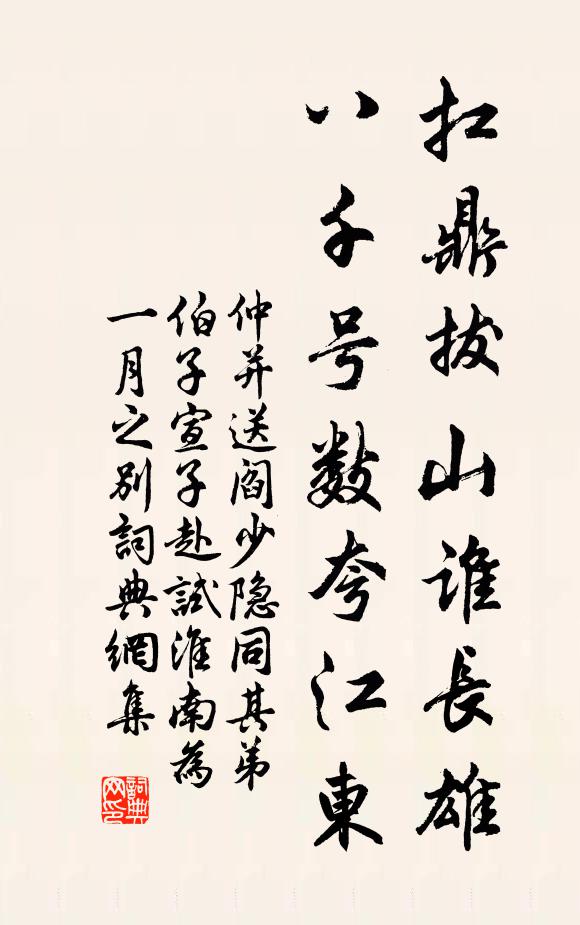 扛鼎拔山谁長雄
八千号数夸江東
仲并送阎少隐同其弟
伯子宣子赴試淮南為
一月之别詞典網集
詞典
网印